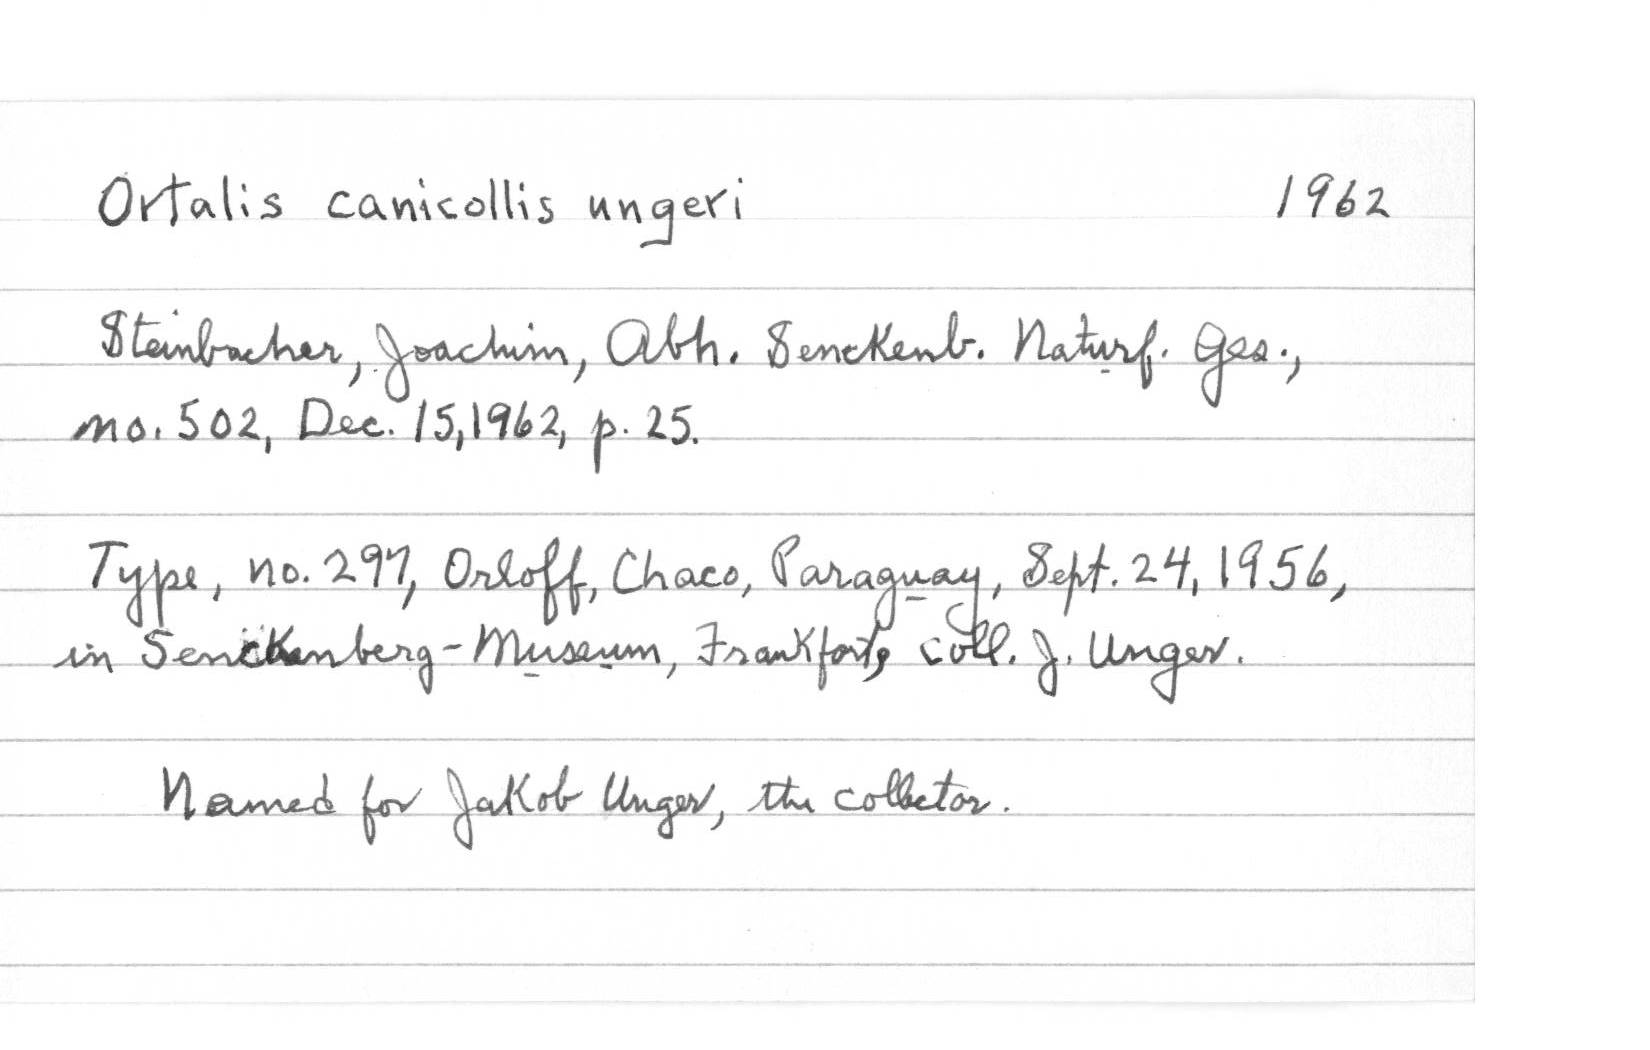 Ortalis canicollis ungeri 1962
Steinbacher, Joachim, Abh. Senckenb. Naturf. Ges.,
no. 502, Dec. 15, 1962, p. 25.
Type, no. 297, Orloff, Chaco, Paraguay, Sept. 24, 1956,
in Senckenberg-Museum, Frankfort, coll. J. Unger.
Named for Jakob Unger, the collector.